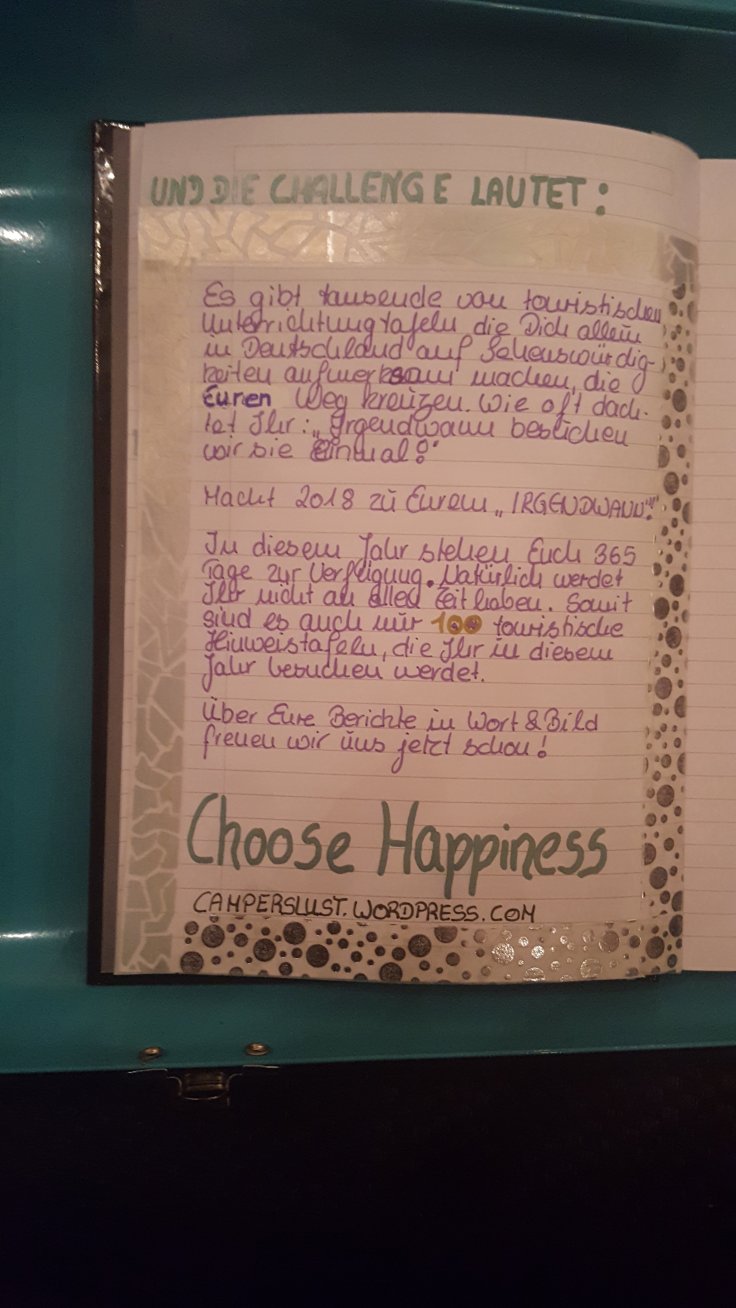 UND DIE CHALLENGE LAUTET:
Es gibt tausende von touristischen
Unterrichtungtafeln die Dich allein
in Deutschland auf Sehenswürdig-
keiten aufmerksam machen, die
Euren Weg kreuzen. Wie oft dach-
tet Ihr: „Irgendwann besuchen
wir sie einmal?"
Macht 2018 zu Eurem „IRGENDWANN"!
In diesem Jahr stehen Euch 365
Tage zur Verfügung. Natürlich werdet
Ihr nicht an allen Zeit haben. Somit
sind es auch nur 100 touristische
Hinweistafeln, die Ihr in diesem
Jahr besuchen werdet.
Über Eure Berichte in Wort & Bild
freuen wir uns jetzt schon!
Choose Happiness
CAMPERSLUST.WORDPRESS.COM